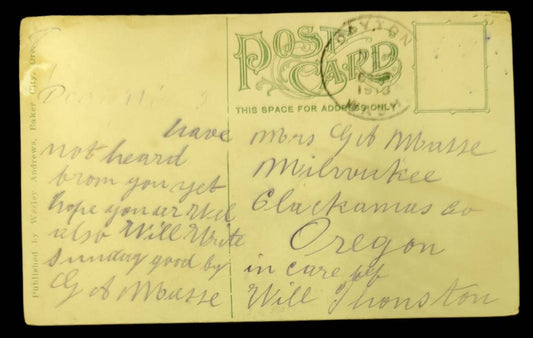 Published by Wesley Andrews, Baker City, Ore.
POST CARD
THIS SPACE FOR ADDRESS ONLY
DAYTON
1913
WASH
Dear
have
not heard
from you yet
hope you ar Well
also Will Write
Sunday good by
G A Musse
Mrs G A Musse
Milwukee
Clackamus Co
Oregon
in care of
Will Thonston